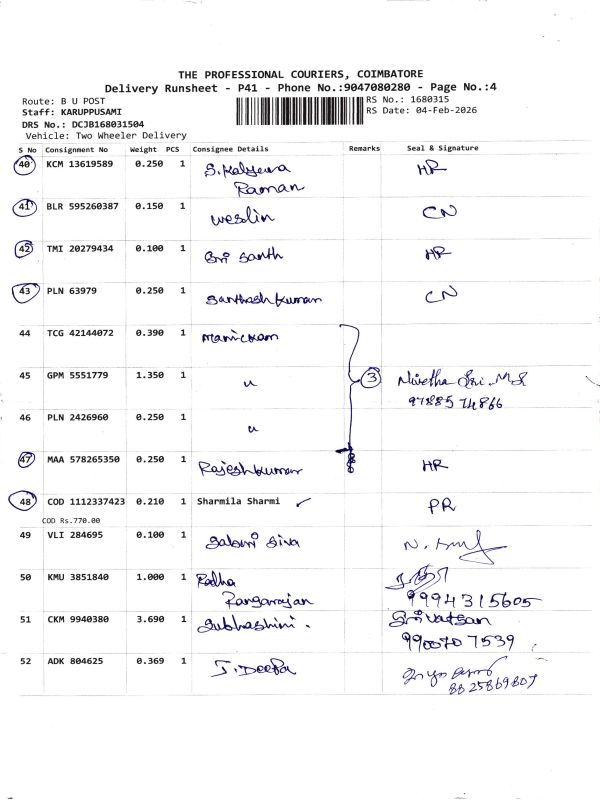 THE PROFESSIONAL COURIERS, COIMBATORE
Delivery Runsheet - P41 - Phone No.:9047080280 - Page No.:4
Route: B U POST
RS No.: 1680315
Staff: KARUPPUSAMI
RS Date: 04-Feb-2026
DRS No.: DCJB168031504
Vehicle: Two Wheeler Delivery
S No Consignment No Weight PCS Consignee Details Remarks Seal & Signature
40 KCM 13619589 0.250 1 S. Kalyana Raman HR
41 BLR 595260387 0.150 1 weslin CN
42 TMI 20279434 0.100 1 Sri Santh HR
43 PLN 63979 0.250 1 Santhosh Kumar CN
44 TCG 42144072 0.390 1 manickam
45 GPM 5551779 1.350 1 " 3 Nivetha Sri. M.S
9788574866
46 PLN 2426960 0.250 1 "
47 MAA 578265350 0.250 1 Rajeshkumar HR
48 COD 1112337423 0.210 1 Sharmila Sharmi ✓ PR
COD Rs.770.00
49 VLI 284695 0.100 1 Sabari Siva N.
50 KMU 3851840 1.000 1 Radha Rangarajan
9994315605
51 CKM 9940380 3.690 1 Subhashini. Srivatsan
9900707539
52 ADK 804625 0.369 1 J. Deepa
8825869807